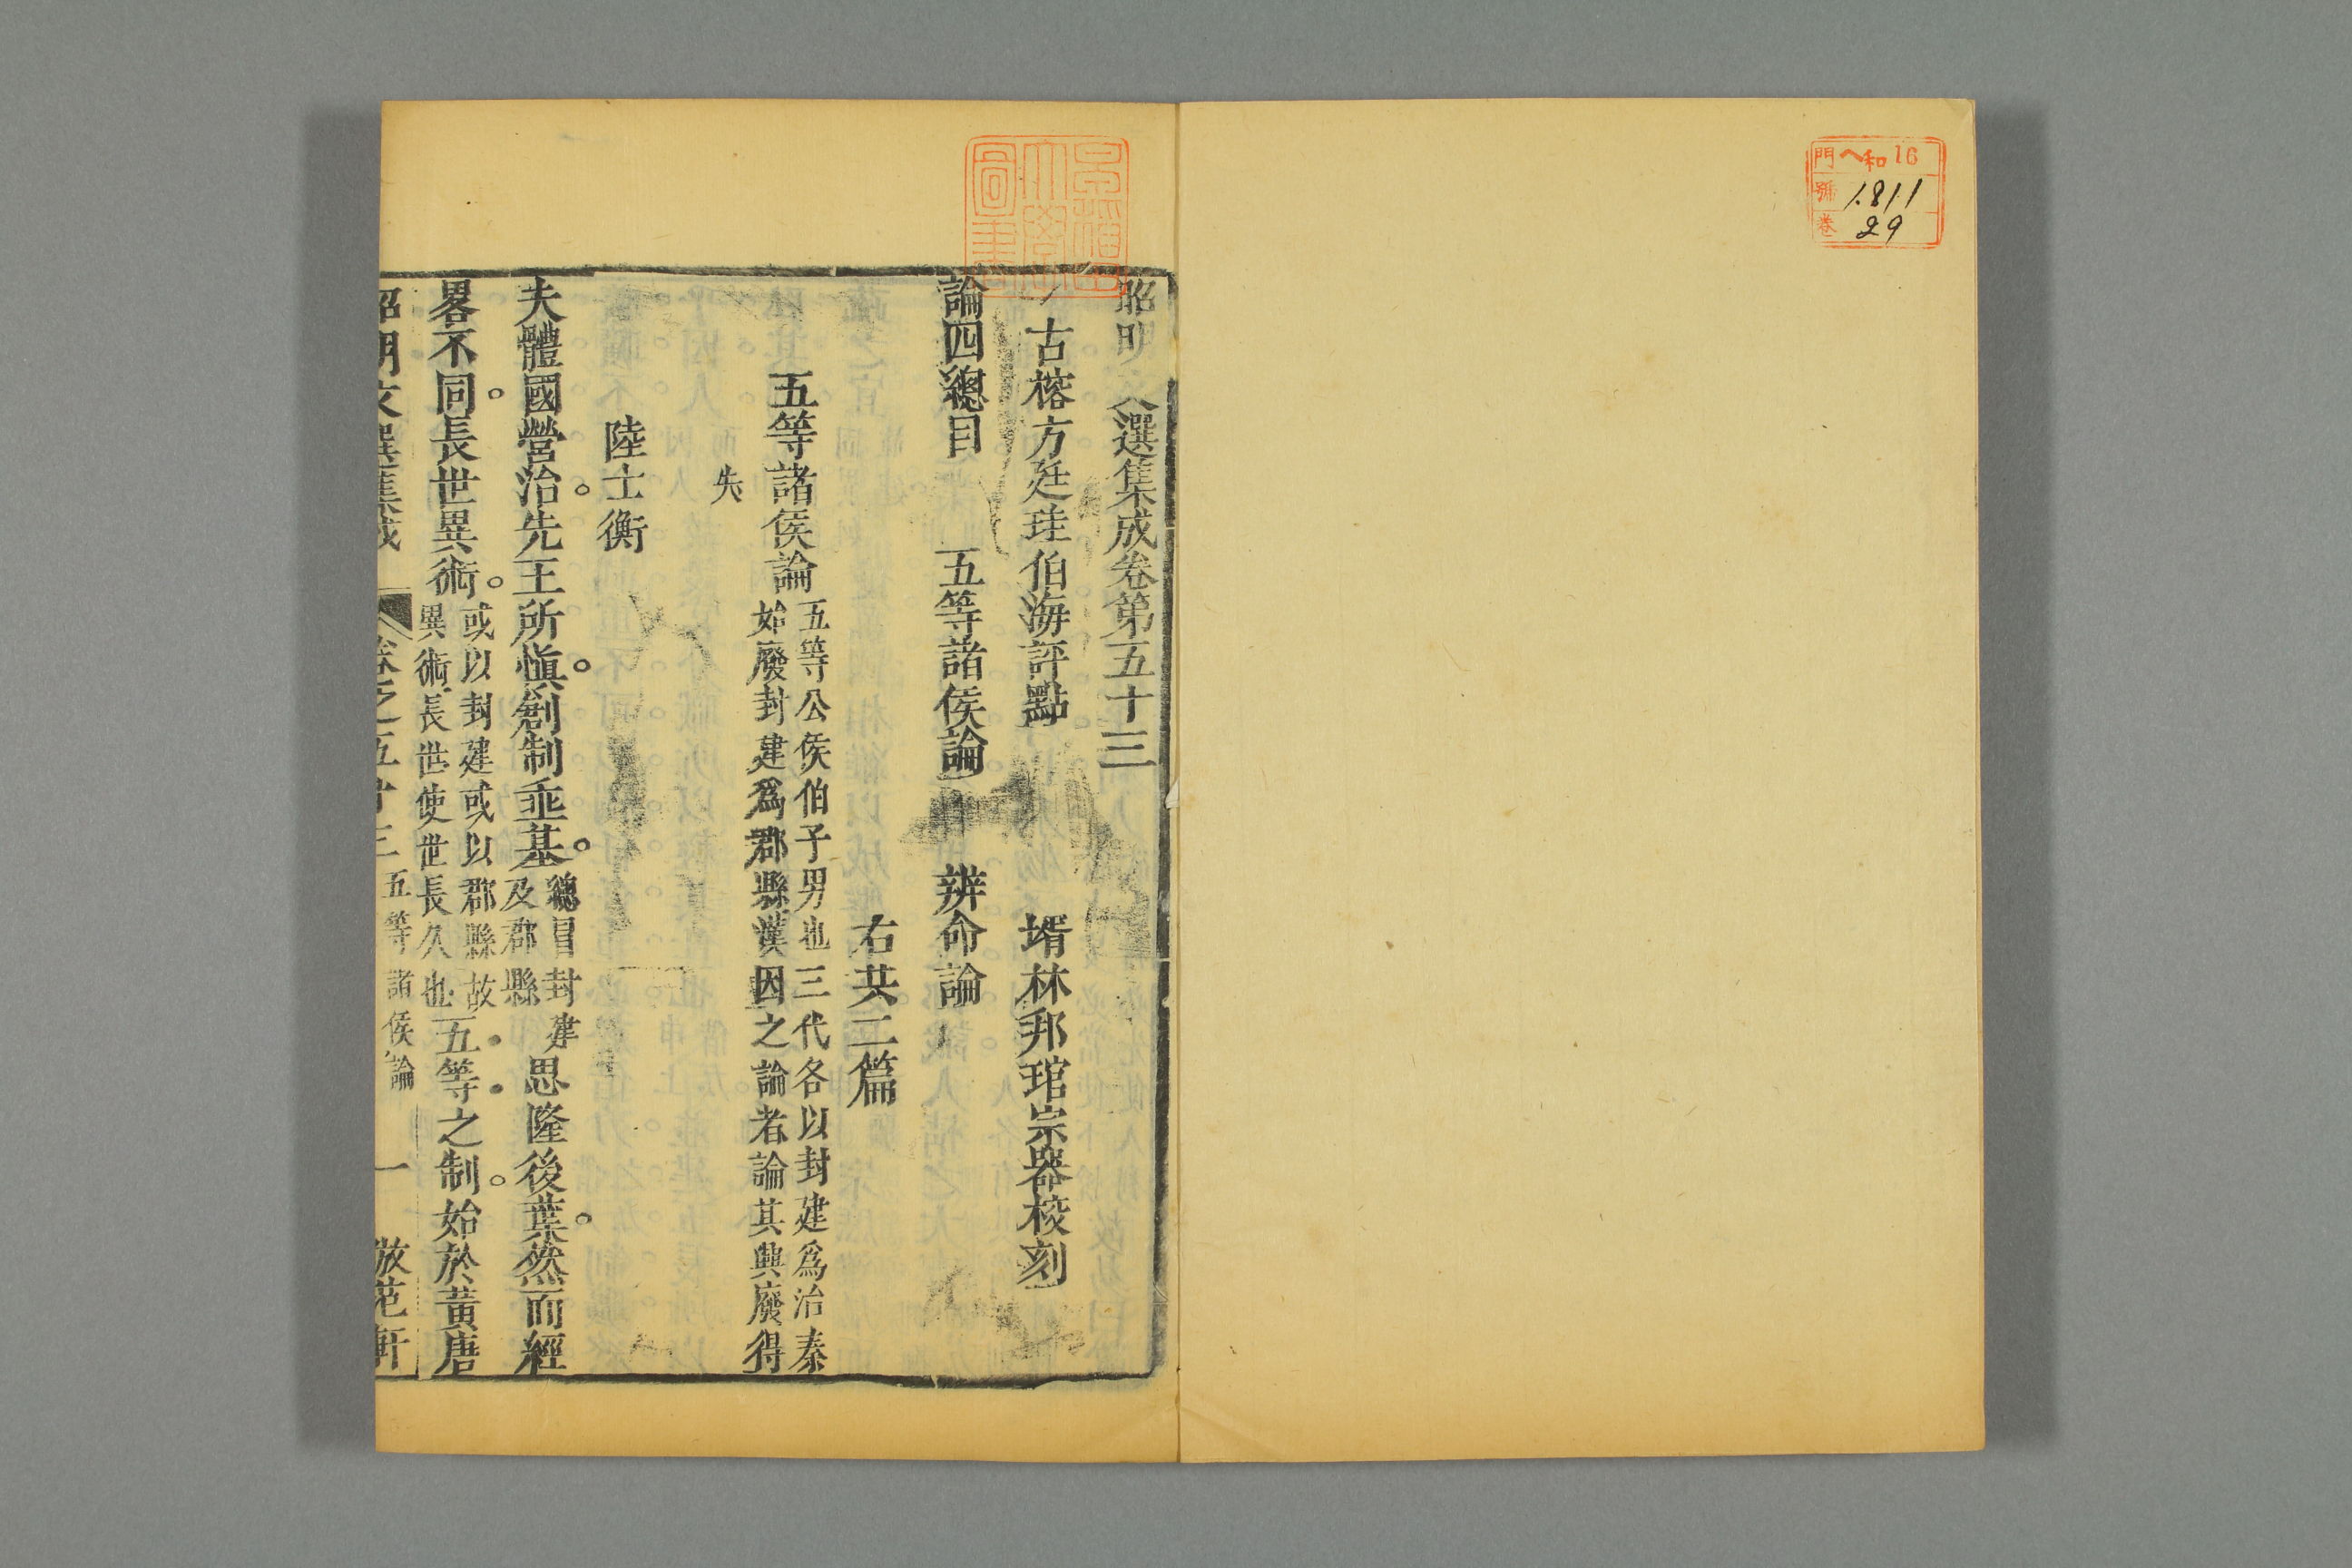 門 ヘ和16
號 1811
卷 29
昭明文選集成卷第五十三
古榕方廷珪伯海評點 壻林邦琯宗器校刻
論四總目
五等諸侯論 辨命論
右共二篇
五等諸侯論 五等公侯伯子男也三代各以封建爲治秦
始廢封建爲郡縣漢因之論者論其興廢得
失
陸士衡
夫體國營治。先王所愼。創制垂基。總冒封建及郡縣思隆後葉。然而經
畧不同。長世異術。或以封建或以郡縣故異術長世使世長久也五等之制。始於黃唐
昭明文選集成 卷之五十三 五等諸侯論 一 倣范軒